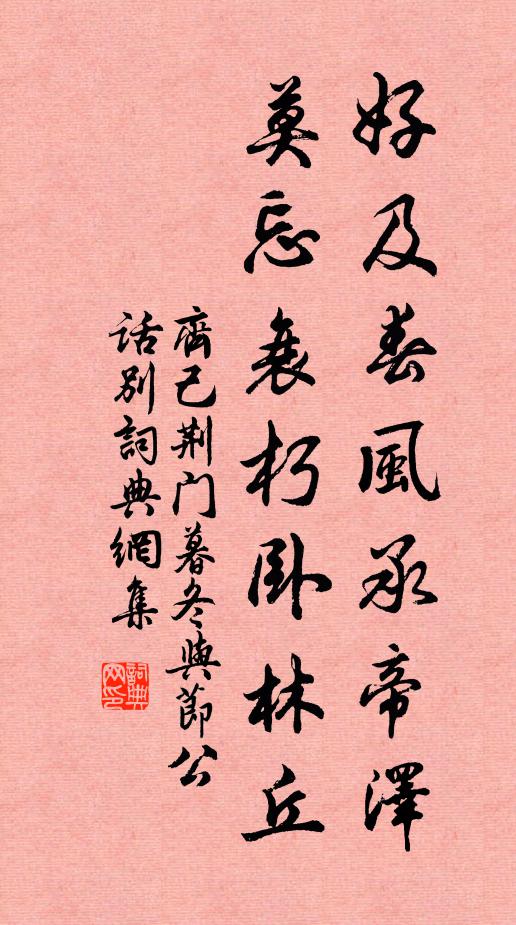 好及春風承帝澤
莫忘衰朽卧林丘
齊己荆门暮冬與節公
话別詞典網集
詞典
网印